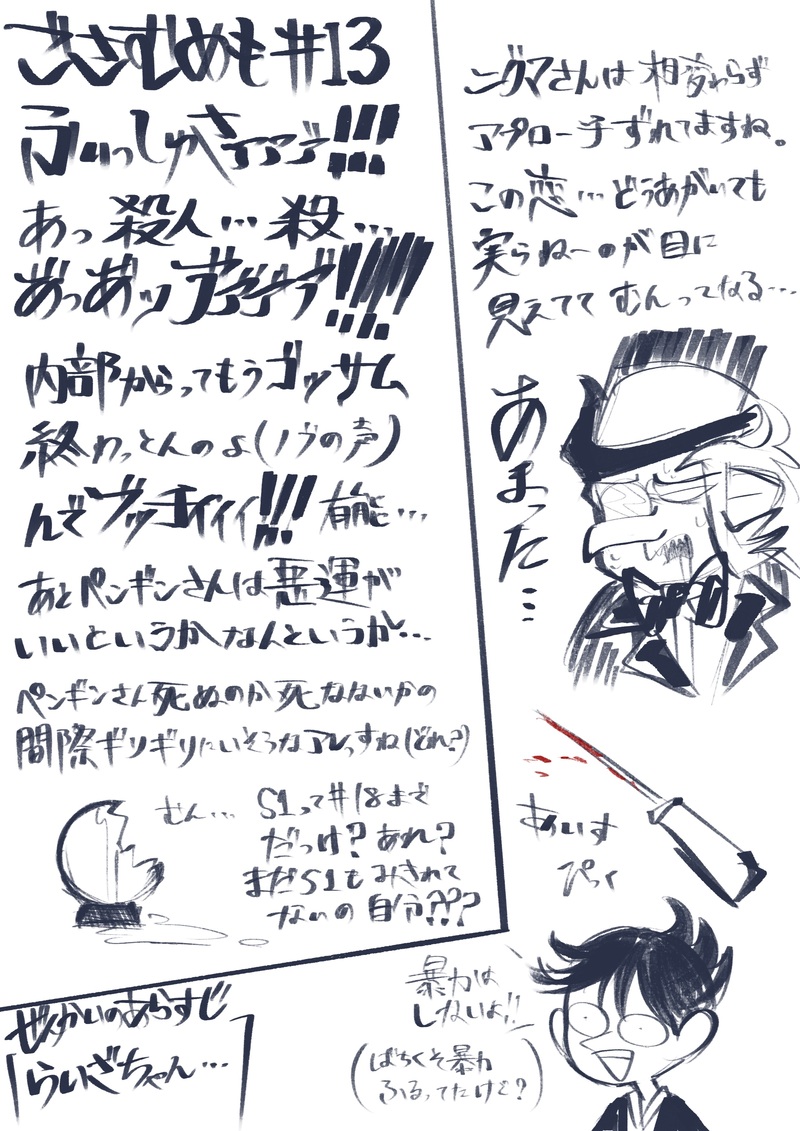 ごさむめも#13
ふぃっしゅさぁアアデ!!!
あっ殺人…殺…
あ゛っあ゛ッアアアアア!!!!!…
内部からってもうゴッサム
終わっとんのよ(ノヴの声)
んでブッチイイイ!!!有能…
あとペンギンさんは悪運が
いいというかなんというか…
ペンギンさん死ぬのか死なないかの
間際ギリギリにいそうなアレっすね(どれ?)
むん… S1って#18まで
だっけ?あれ?
まだS1もみきれて
ないの自分???
ぜんかいのあらすじ
「らいざちゃん…」
ニグマさんは相変わらず
アプローチずれてますね。
この恋…どうあがいても
実らねーのが目に
見えてて むんってなる…
あまった…
あいす
ぴっく
暴力は
しないよ!!
(ばちくそ暴力
ふるってたけど?)